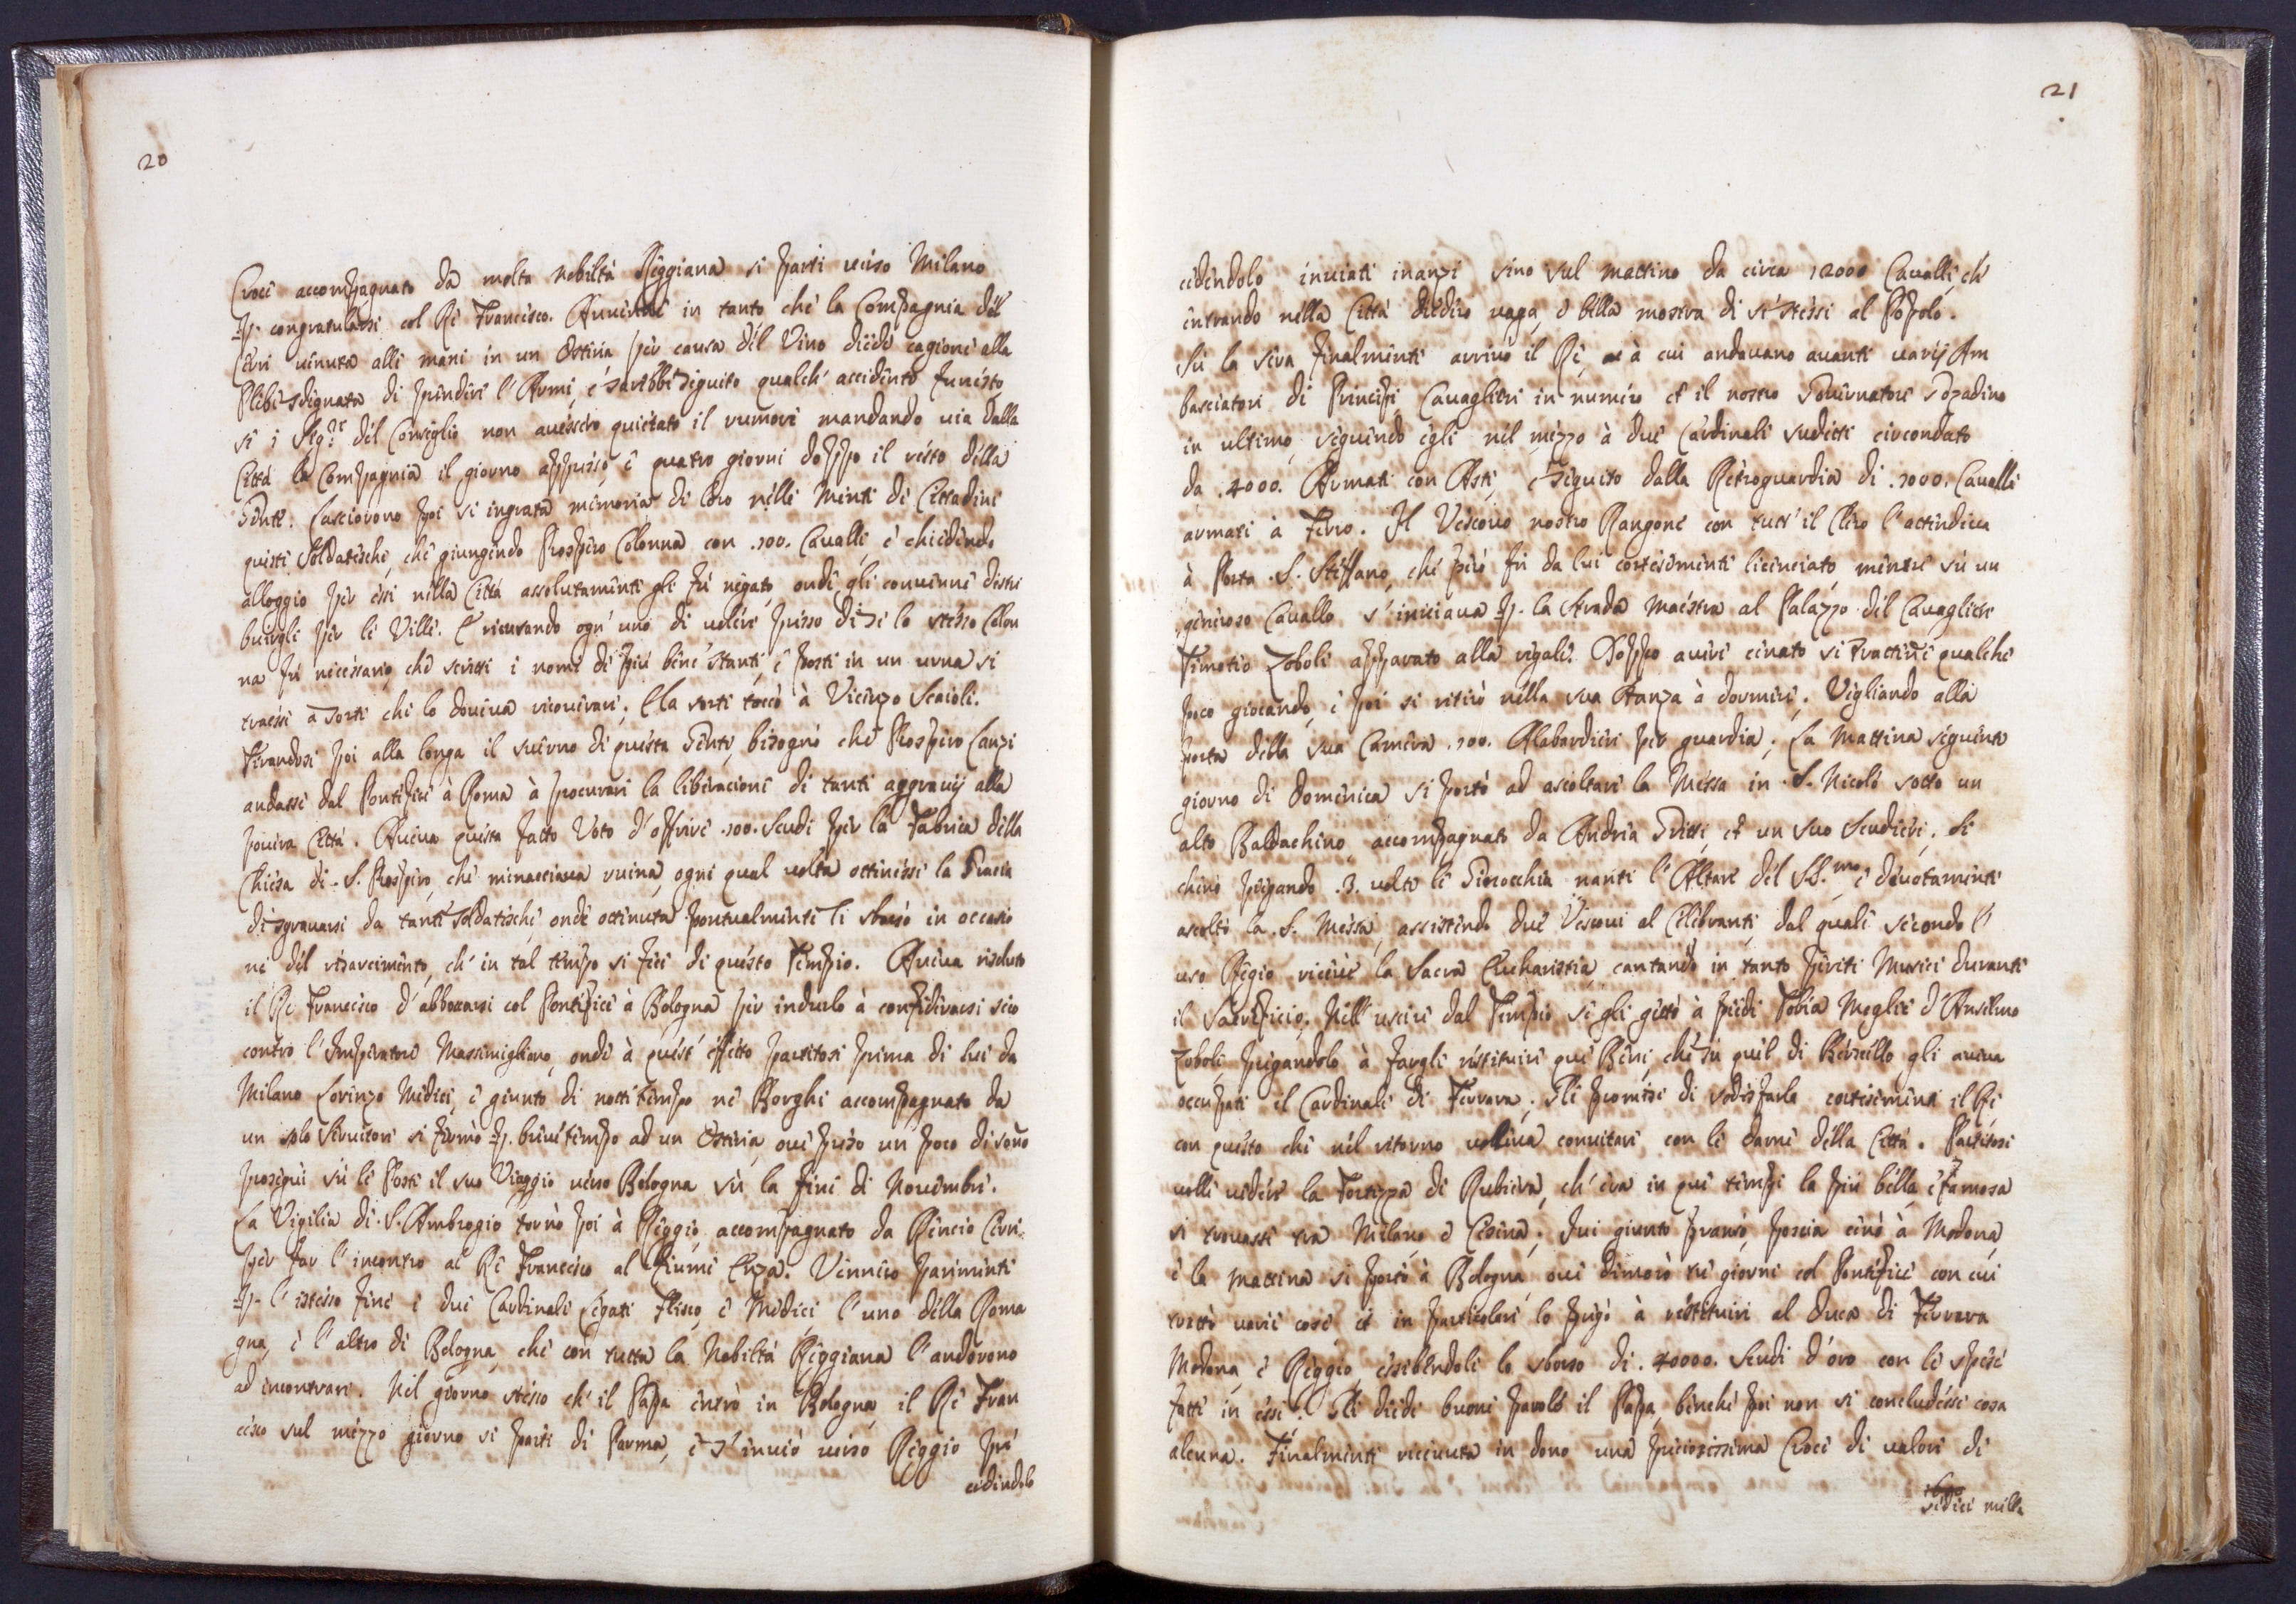 20
Croce accompagnato da molta nobiltà Reggiana si partì verso Milano
p. congratularsi col Rè Francesco. Auuenne in tanto che la Compagnia del
Ceri uenuta alle mani in un Ostaria per causa del Vino diede cagione alla
Plebe sdignata di prendere l'Armi, e sarebbe seguito qualch'accidente funesto
se i Sig.ri del Conseglio non auessero quietato il rumore mandando uia dalla
Città la Compagnia il giorno appresso, e quatro giorni doppo il resto della
Gente. Lasciorono poi si ingrata memoria di loro nelle menti de Cittadini
queste Soldatesche, che giungendo Prospero Colonna con .100. Caualli, e chiedendo
alloggio per essi nella Città assolutamente gli fù negato, onde gli conuenne distri
buirgli per le Ville. E ricusando ogn'uno di uolere presso di se lo stesso Colon
na fù necessario, che scritti i nomi de più bene stanti, e posti in un urna si
traesse a sorte chi lo doueua ricouerare. E la sorte toccò à Vicenzo Scaioli.
Tirandosi poi alla longa il suerno di questa Gente, bisognò che Prospero Lanzi
andasse dal Pontefice à Roma à procurare la liberacione di tanti aggrauij alla
pouera Città. Aueua questa fatto Voto d'offrire .100. Scudi per la Fabrica della
Chiesa di .S. Prospero, che minacciaua ruina, ogni qual uolta ottenesse la Gracia
di sgrauarsi da tante Soldatesche, onde ottenuta pontualmente li sborsò in occasio
ne del risarcimento, ch'in tal tempo si fece di questo Tempio. Aueua risoluto
il Rè Francesco d'abboccarsi col Pontefice à Bologna per indurlo à confederarsi seco
contro l'Imperatore Massimigliano, onde à quest'effetto partitosi prima di lui da
Milano Lorenzo Medici, e giunto di notte tempo ne Borghi accompagnato da
un solo Seruitore si fermò p. breue tempo ad un Ostaria, oue preso un poco di sono
proseguì sù le Poste il suo Viaggio uerso Bologna sù la fine di Nouembre.
La Vigilia di .S. Ambrogio tornò poi à Reggio accompagnato da Rencio Ceri
per far l'incontro al Rè Francesco al Fiume Enza. Vennero parimente
p. l'istesso fine i due Cardinali Legati Flisco, e Medici l'uno della Roma
gna, e l'altro di Bologna, che con tutta la Nobiltà Reggiana l'andorono
ad incontrare. Nel giorno stesso ch'il Papa entrò in Bologna, il Rè Fran
cesco sul mezzo giorno si partì di Parma, e s'inuiò uerso Reggio pre
cedendolo
21
cedendolo inuiati inanzi sino sul mattino da circa 12000 Caualli, ch'
entrando nella Città diedero uaga, e bella mostra di se stessi al Popolo.
Sù la sera finalmente arriuò il Rè, à cui andauano auanti uarij Am
basciatori di Principi, Cauaglieri in numero et il nostro Gouernatore Gozadino
in ultimo, seguendo egli nel mezzo à due Cardinali sudetti circondato
da .4000. Armati con Aste, e seguito dalla Retroguardia di .1000. Caualli
armati à Ferro. Il Vescouo nostro Rangone con tutt'il Clero l'attendeua
à Porta .S. Steffano, che però fù da lui cortesemente licenciato, mentre sù un
generoso Cauallo s'inuiaua p. la Strada Maestra al Palazzo del Cauagliere
Timoteo Zoboli apparato alla regale. Doppo auere cenato si trattenè qualche
poco giocando, e poi si ritirò nella sua Stanza à dormire. Vegliando alla
porta della sua Camera .100. Alabardieri per guardia. La Mattina seguente
giorno di Domenica si portò ad ascoltare la Messa in .S. Nicolò sotto un
alto Baldachino, accompagnato da Andrea Gritti, et un suo Scudiere. Si
chinò piegando .3. uolte le Ginocchia nanti l'Altare del SS.mo, e deuotamente
ascoltò la .S. Messa, assistendo due Vescoui al Celebrante, dal quale secondo l'
uso Regio riceuè la Sacra Eucharistia, cantando in tanto periti Musici durante
il Sacrificio. Nell'uscire dal Tempio se gli gettò à piedi Tobia Moglie d'Anselmo
Zoboli pregandolo à fargli restituire que Beni, che sù quel di Bersello gli aueua
occupati il Cardinale di Ferrara. Gli promise di sodisfarla cortesemente il Rè
con questo che nel ritorno uoleua conuitare con le dame della Città. Partitosi
uolle uedere la Fortezza di Rubiera, ch'era in que tempi la più bella, e famosa
si trouasse trà Milano, e Cesena. Iui giunto pransò, poscia cenò à Modona,
e la mattina si portò à Bologna oue dimorò tre giorni col Pontefice con cui
trattò uarie cose et in particolare lo pregò à restituire al Duca di Ferrara
Modona, e Reggio, essibendoli lo sborso di .40000. Scudi d'oro con le spese
fatte in essi. Gli diede buone parole il Papa, benche poi non si concludesse cosa
alcuna. Finalmente riceuuta in dono una preciosissima Croce di ualore di
sedeci milla